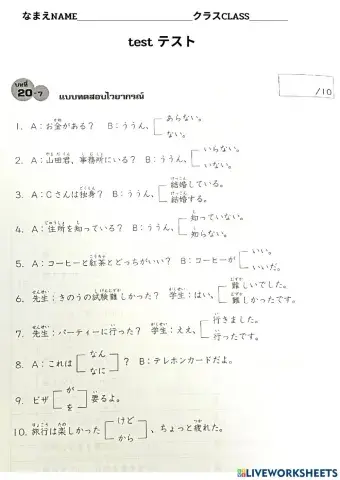 なまえNAME____________________ クラスCLASS________
test テスト
บทที่
20-7 แบบทดสอบไวยากรณ์ /10
1. A：お金がある？ B：ううん、［あらない。
ない。
2. A：山田君、事務所にいる？ B：ううん、［いらない。
いない。
3. A：Cさんは独身？ B：ううん、［結婚している。
結婚する。
4. A：住所を知っている？ B：ううん、［知っていない。
知らない。
5. A：コーヒーと紅茶とどっちがいい？ B：コーヒーが［いい。
いいだ。
6. 先生：きのうの試験難しかった？ 学生：はい、［難しいでした。
難しかったです。
7. 先生：パーティーに行った？ 学生：ええ、［行きました。
行ったです。
8. A：これは［なん
なに］？ B：テレホンカードだよ。
9. ビザ［が
を］要るよ。
10. 旅行は楽しかった［けど
から］、ちょっと疲れた。
LIVEWORKSHEETS